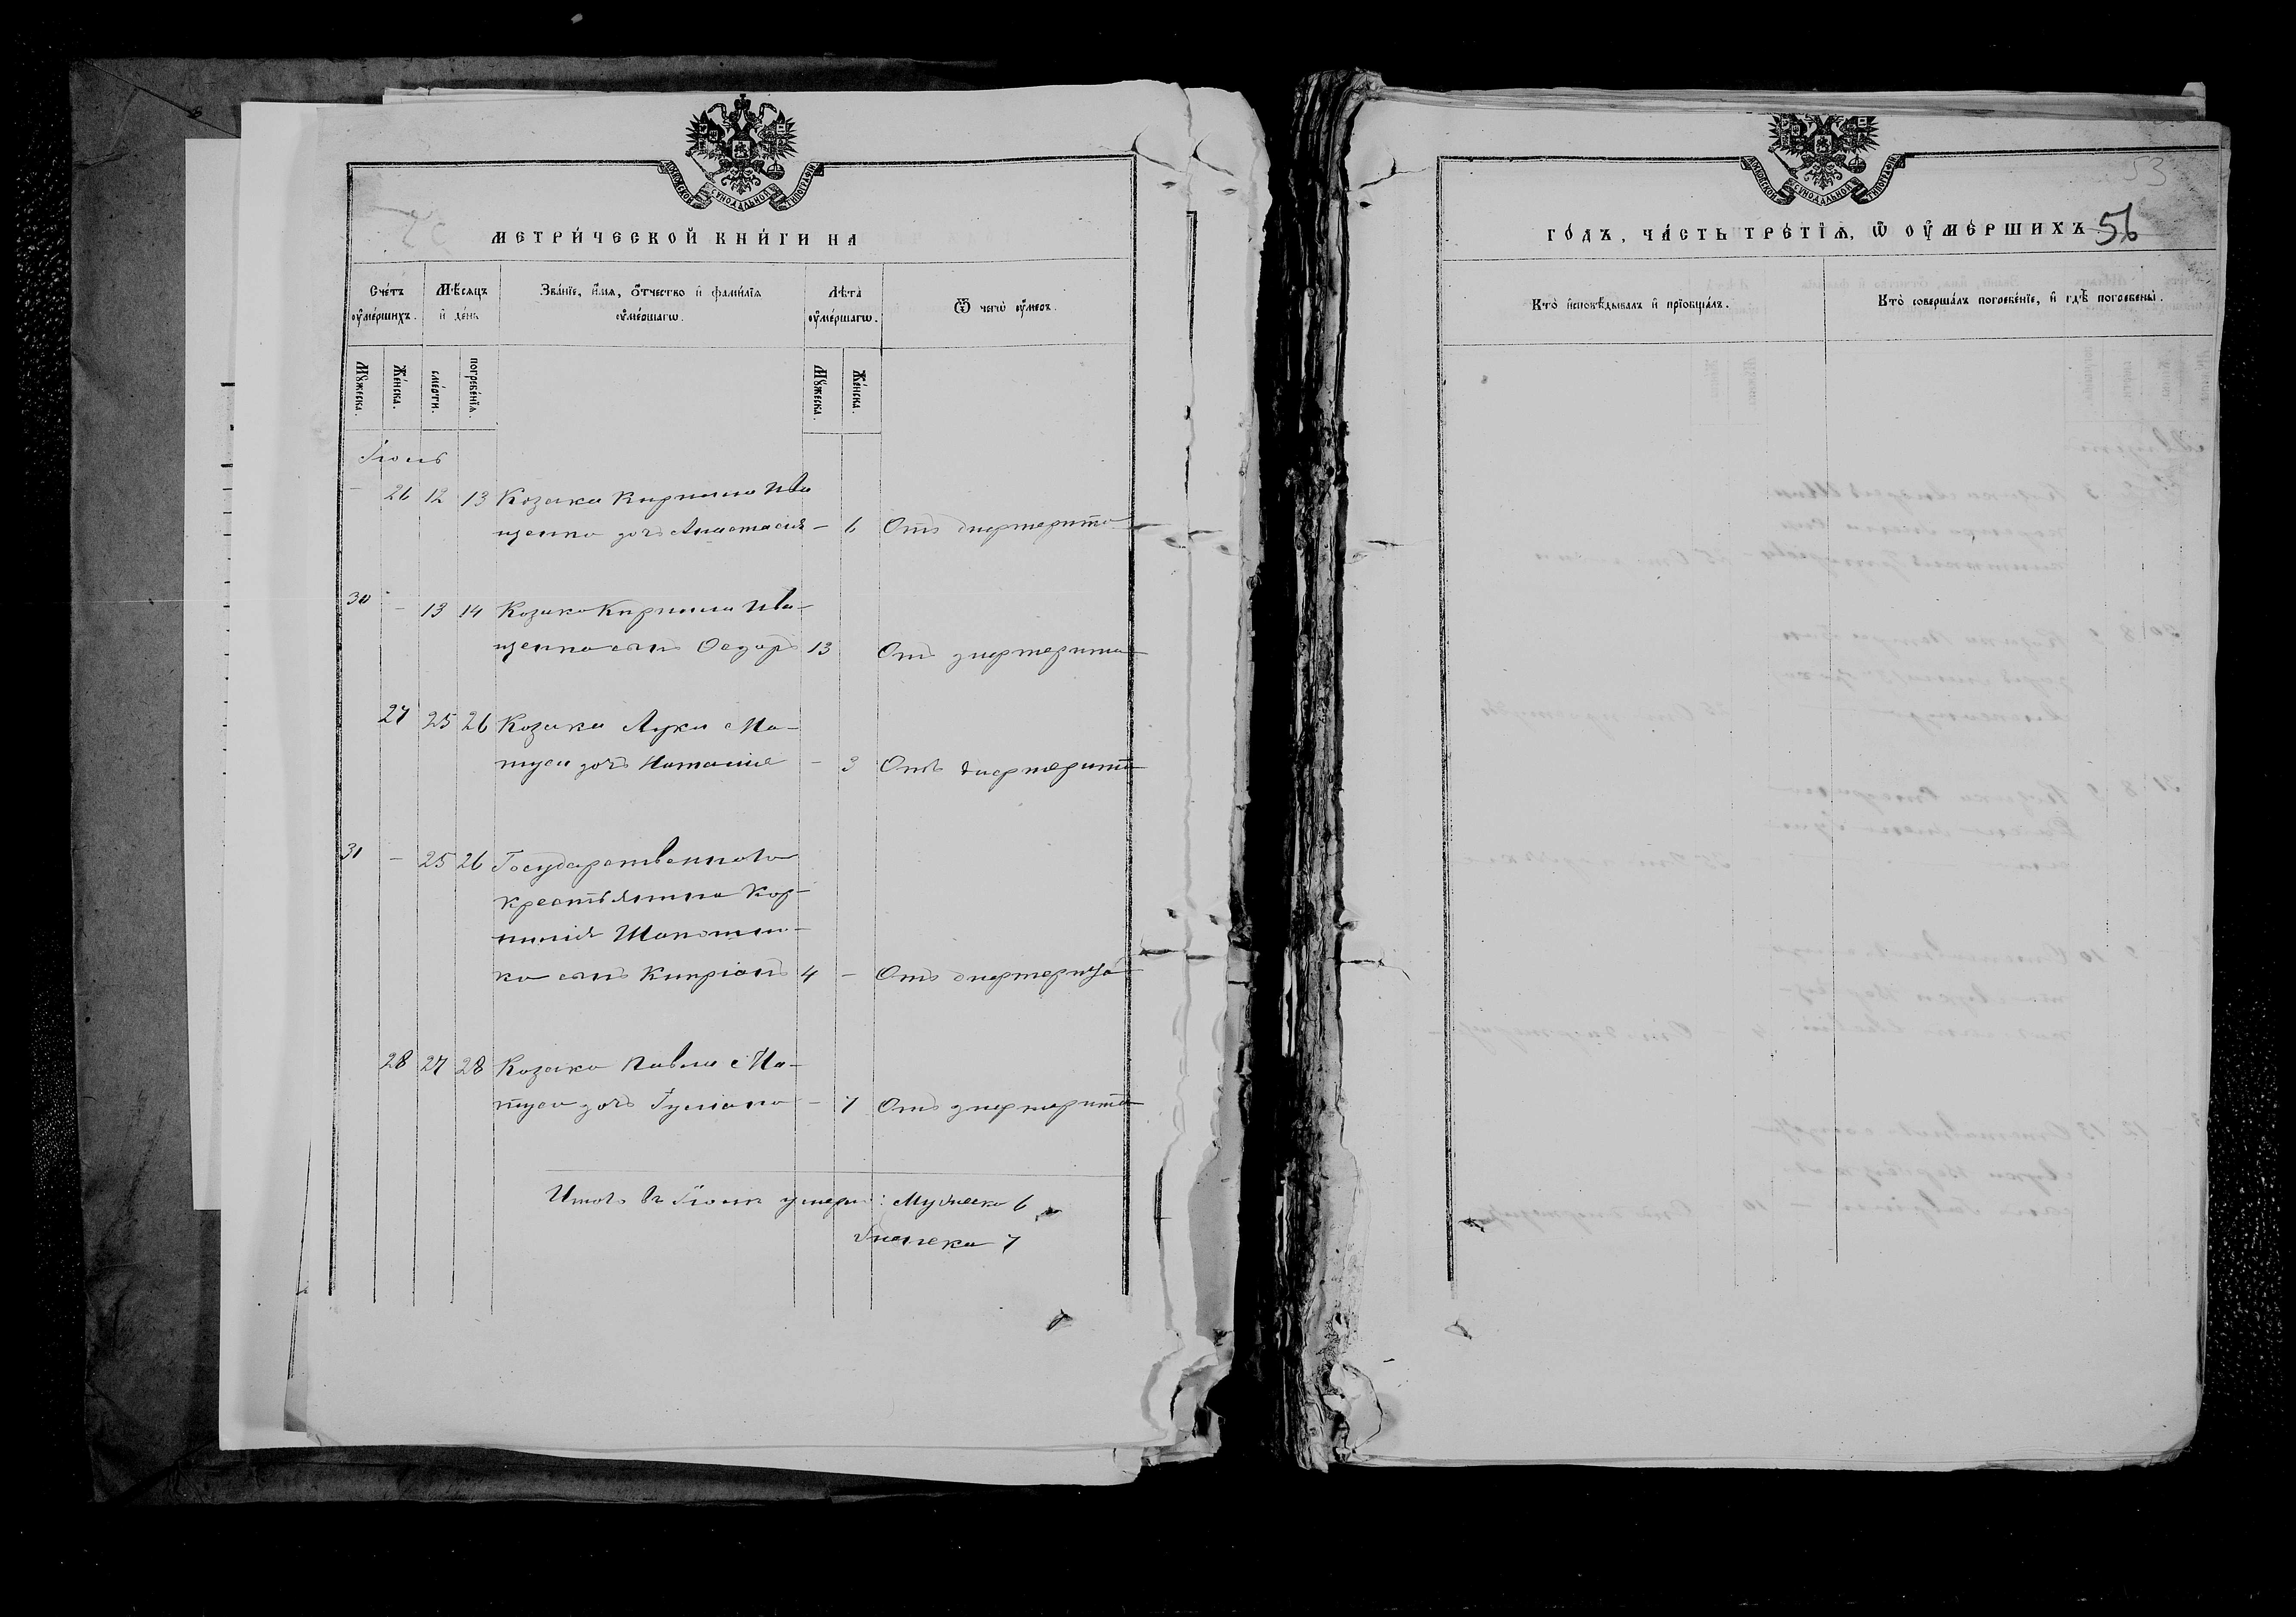 МОСКОВСКОЙ СѴНОДАЛЬНОЙ ТИПОГРАФІИ
МЕТРИ́ЧЕСКОЙ КНИ́ГИ НА
Сче́тъ ᲂу҆ме́ршихъ.
Мѣ́сяцъ и҆ де́нь
Зва́нїе, и҆́мя, ѻ҆́тчество и҆ фами́лїя ᲂу҆ме́ршагѡ.
Лѣ́та ᲂу҆ме́ршагѡ.
Ѿ чегѡ̀ ᲂу҆́меръ.
Мꙋ́жеска.
Же́нска.
сме́рти.
погребе́нїѧ.
Мꙋ́жеска.
Же́нска.
Іюль
- 26 12 13 Козака Кирилла Ива
щенко дочь Анастасія - 6 Отъ дифтерита
30 - 13 14 Козака Кирилла Ива-
щенко сынъ Ѳедоръ 13 Отъ дифтерита
27 25 26 Козака Луки Ма-
туси дочь Наталія - 3 Отъ дифтерита
31 - 25 26 Государственнаго
крестьянина Кор-
нилія Шапошни-
ка сынъ Кипріанъ 4 - Отъ дифтерита
28 27 28 Козака Павла Ма-
туси дочь Іуліана - 7 Отъ дифтерита
Итого въ Іюлѣ умерло: Мужеска 6
Женска 7
МОСКОВСКОЙ СѴНОДАЛЬНОЙ ТИПОГРАФІИ
53
ГО́ДЪ, ЧА́СТЬ ТРЕ́ТЇЯ, Ѿ ОУ҆МЕ́РШИХЪ
56
Кто̀ и҆сповѣ́дывалъ и҆ прїобща́лъ.
Кто̀ соверша́лъ погребе́нїе, и҆ гдѣ̀ погребены̀.